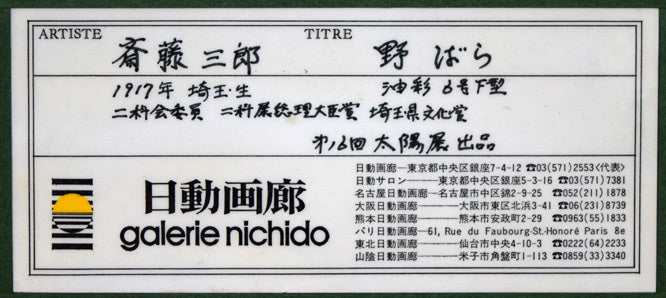 ARTISTE 斎藤三郎 TITRE 野ばら
1917年 埼玉生 油彩 8号F型
二科会委員 二科展総理大臣賞 埼玉県文化賞
第16回 太陽展 出品
日動画廊
galerie nichido
日動画廊―東京都中央区銀座7-4-12 ☎03(571)2553<代表>
日動サロン――東京都中央区銀座5-3-16 ☎03(571)7381
名古屋日動画廊―名古屋市中区錦2-9-25 ☎052(211)1878
大阪日動画廊――大阪市東区北浜3-41 ☎06(231)8739
熊本日動画廊――熊本市安政町2-29 ☎0963(55)1833
パリ日動画廊―61, Rue du Faubourg-St.-Honoré Paris 8e
東北日動画廊――仙台市中央4-10-3 ☎0222(64)2233
山陰日動画廊――米子市角盤町1-113 ☎0859(33)3340